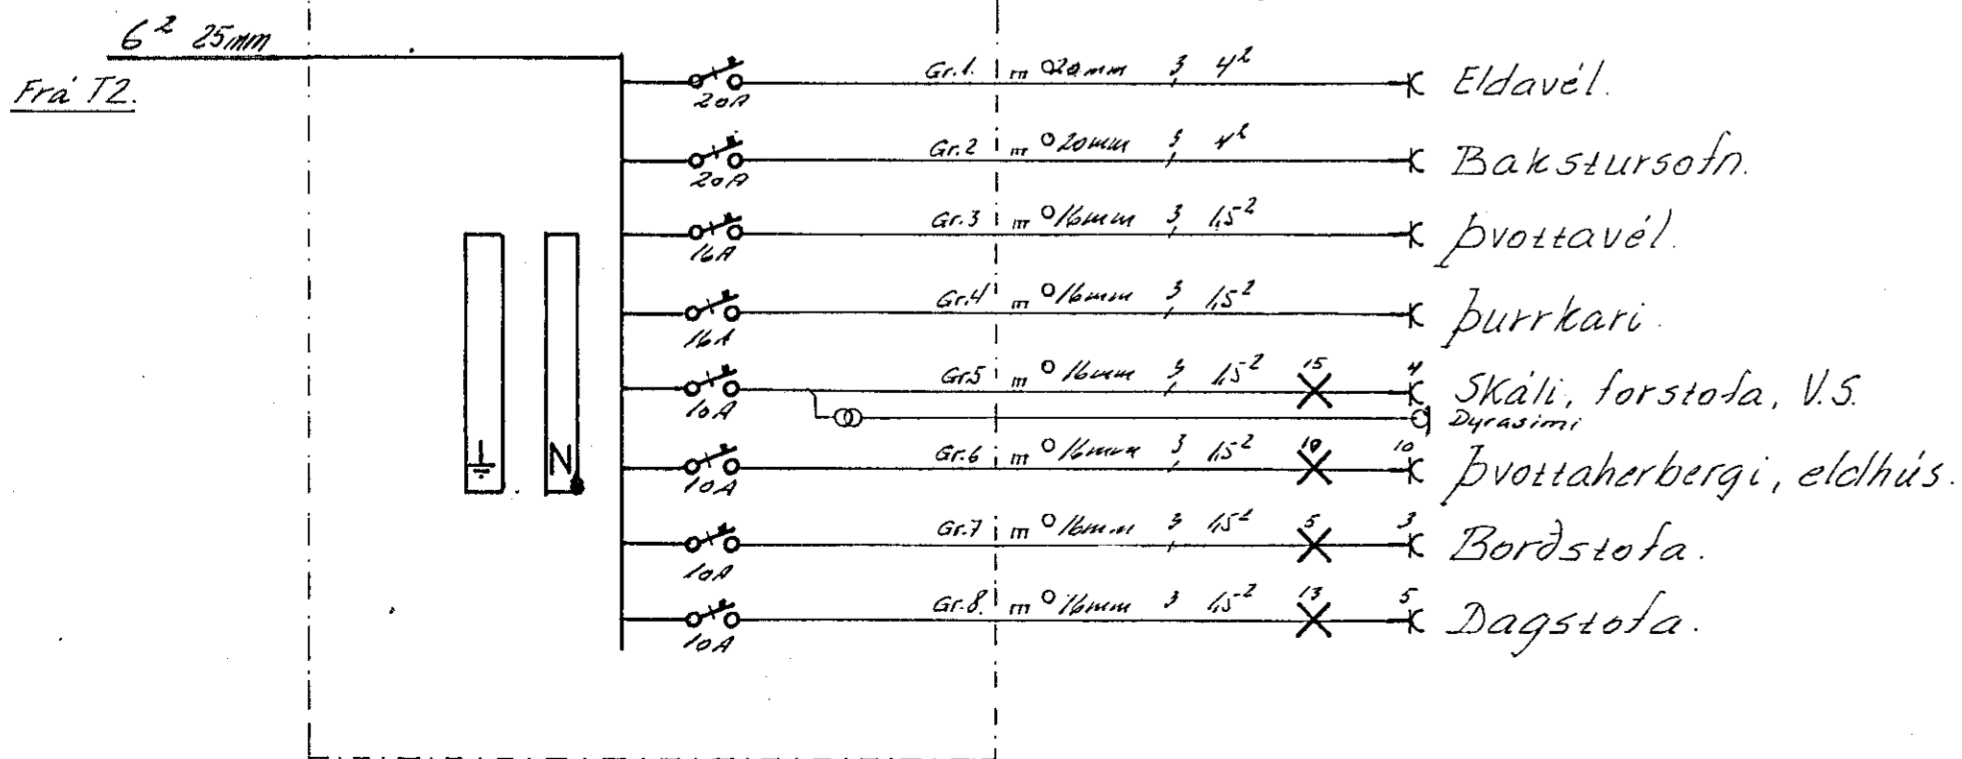 6² 25mm
Frá T2.
20A Gr.1. m 20mm 3 4² Eldavél.
20A Gr.2 m 20mm 3 4² Bakstursofn.
16A Gr.3 m 16mm 3 1,5² Þvottavél.
16A Gr.4 m 16mm 3 1,5² Þurrkari.
10A Gr.5 m 16mm 3 1,5² 15 4 Skáli, forstofa, V.S.
Dyrasimi
10A Gr.6 m 16mm 3 1,5² 10 10 Þvottaherbergi, eldhús.
N
10A Gr.7 m 16mm 3 1,5² 5 3 Borðstofa.
10A Gr.8. m 16mm 3 1,5² 13 5 Dagstofa.